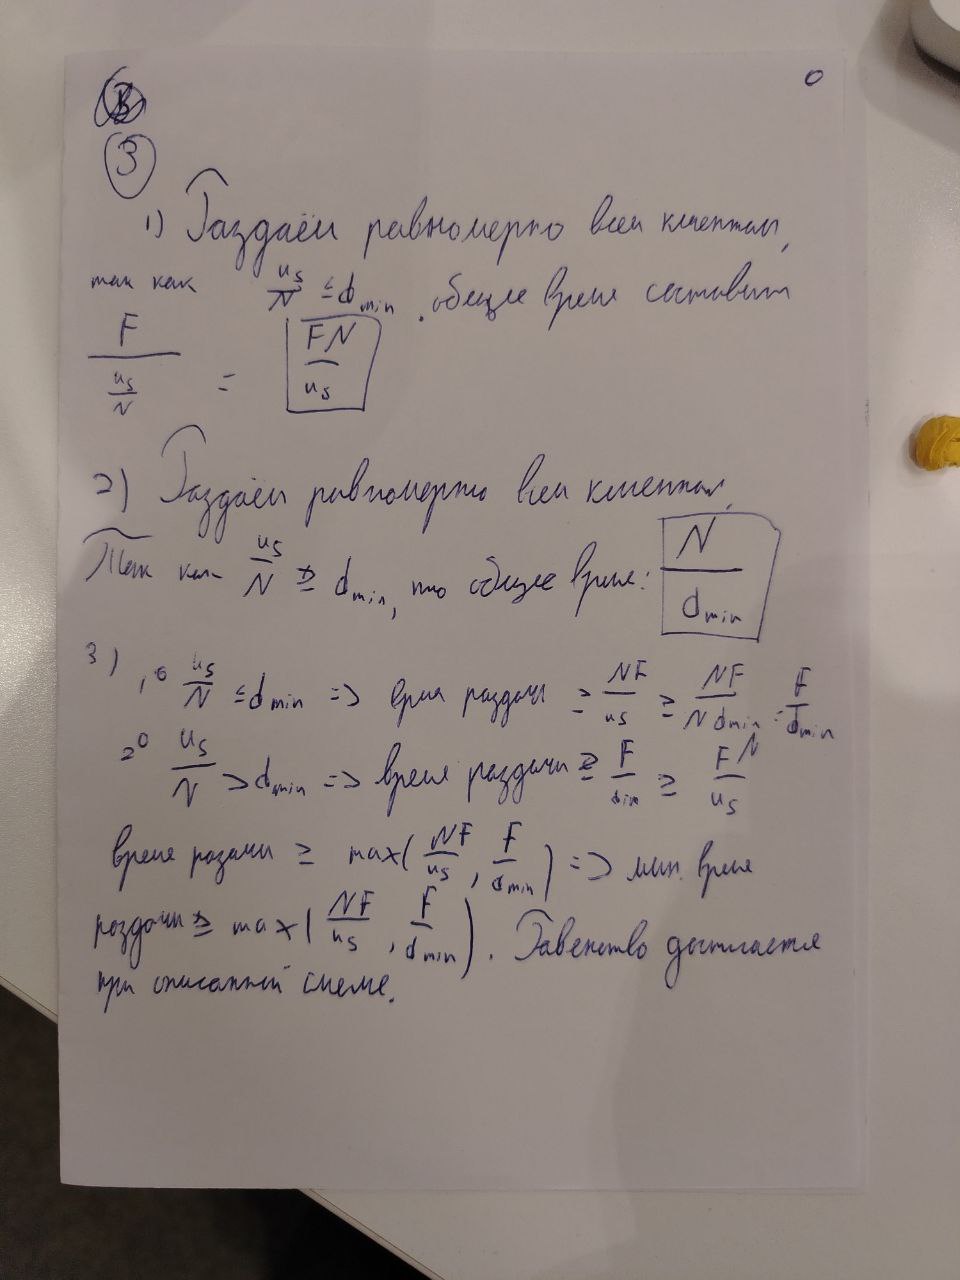 0
3
1) Раздаём равномерно всем клиентам,
так как u_s/N ≤ d_min. общее время составит
F/(u_s/N) = FN/u_s
2) Раздаём равномерно всем клиентам.
Так как u_s/N ≥ d_min, то общее время: N/d_min
3) 1° u_s/N ≤ d_min => время раздачи ≥ NF/u_s ≥ NF/(N d_min) = F/d_min
2° u_s/N > d_min => время раздачи ≥ F/d_min ≥ FN/u_s
время раздачи ≥ max(NF/u_s, F/d_min) => мин. время
раздачи ≥ max(NF/u_s, F/d_min). Равенство достигается
при описанной схеме.